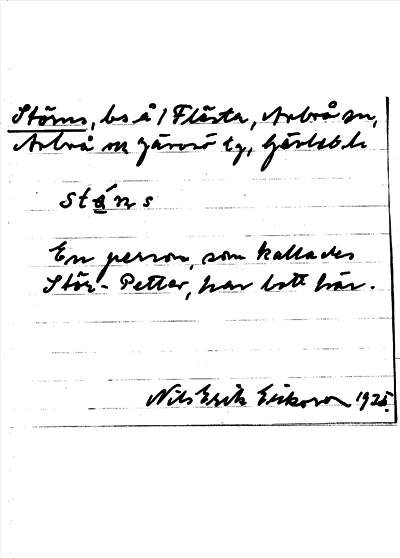 Störns, bs å 1 Flästa, Arbrå sn,
Arbrå m Järvsö tg, Gävleb. l.
stö́ns
En person, som kallades
Stör-Petter, har bott här.
Nils Erik Erikson 1925.